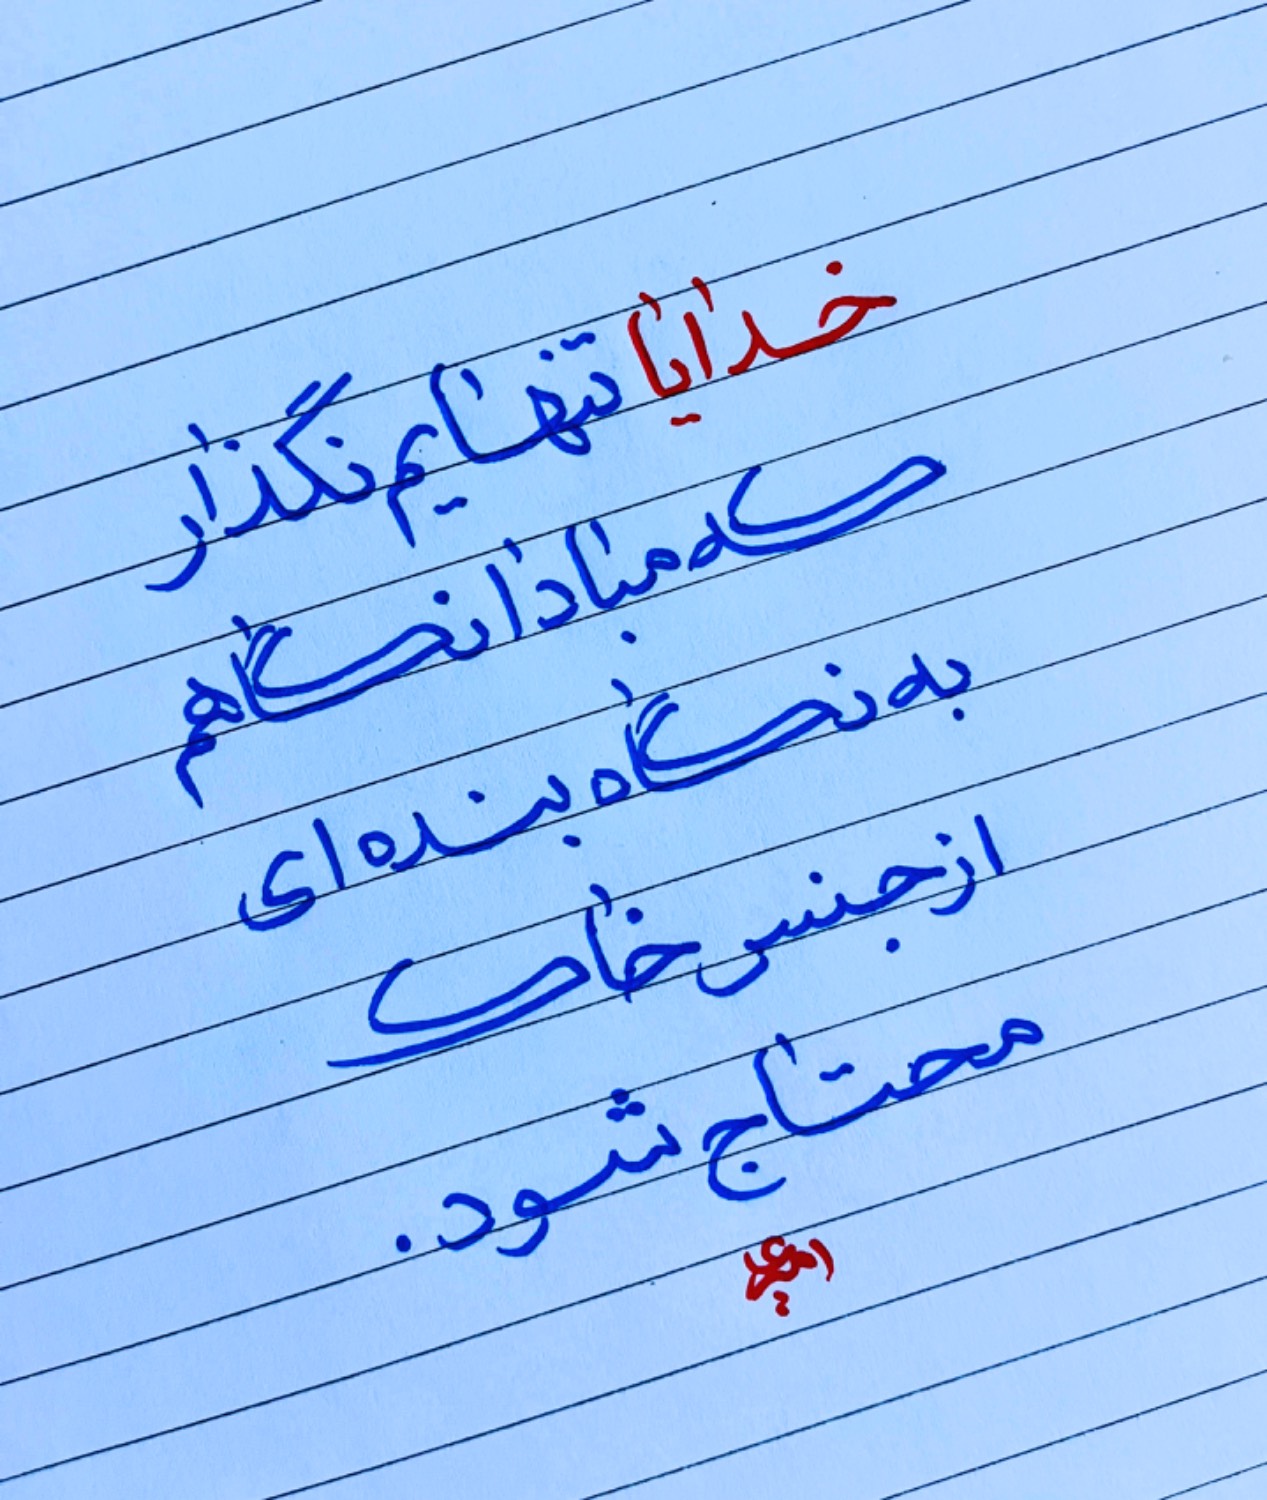 خدایا تنهایم نگذار
که مبادا نگاهم
به نگاه بنده ای
از جنس خاک
محتاج شود.